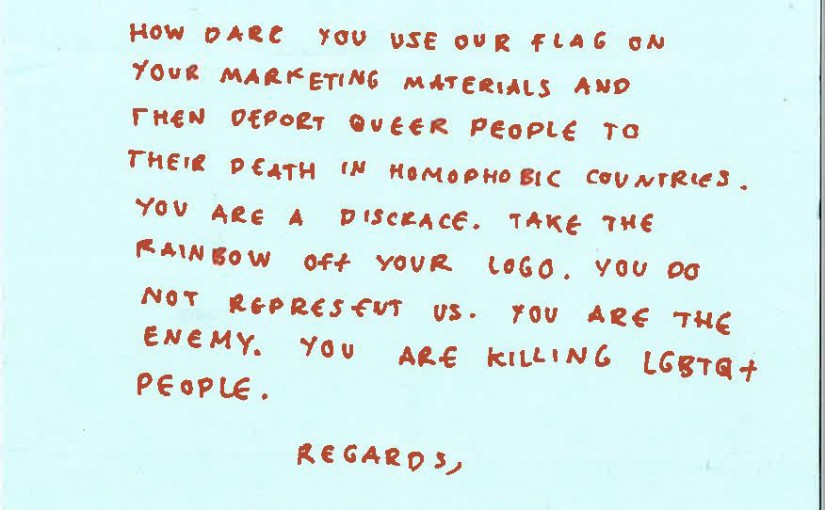 HOW DARE YOU USE OUR FLAG ON
YOUR MARKETING MATERIALS AND
THEN DEPORT QUEER PEOPLE TO
THEIR DEATH IN HOMOPHOBIC COUNTRIES.
YOU ARE A DISCRACE. TAKE THE
RAINBOW Off YOUR LOGO. YOU DO
NOT REPRESENT US. YOU ARE THE
ENEMY. YOU ARE KILLING LGBTQ+
PEOPLE.
REGARDS,